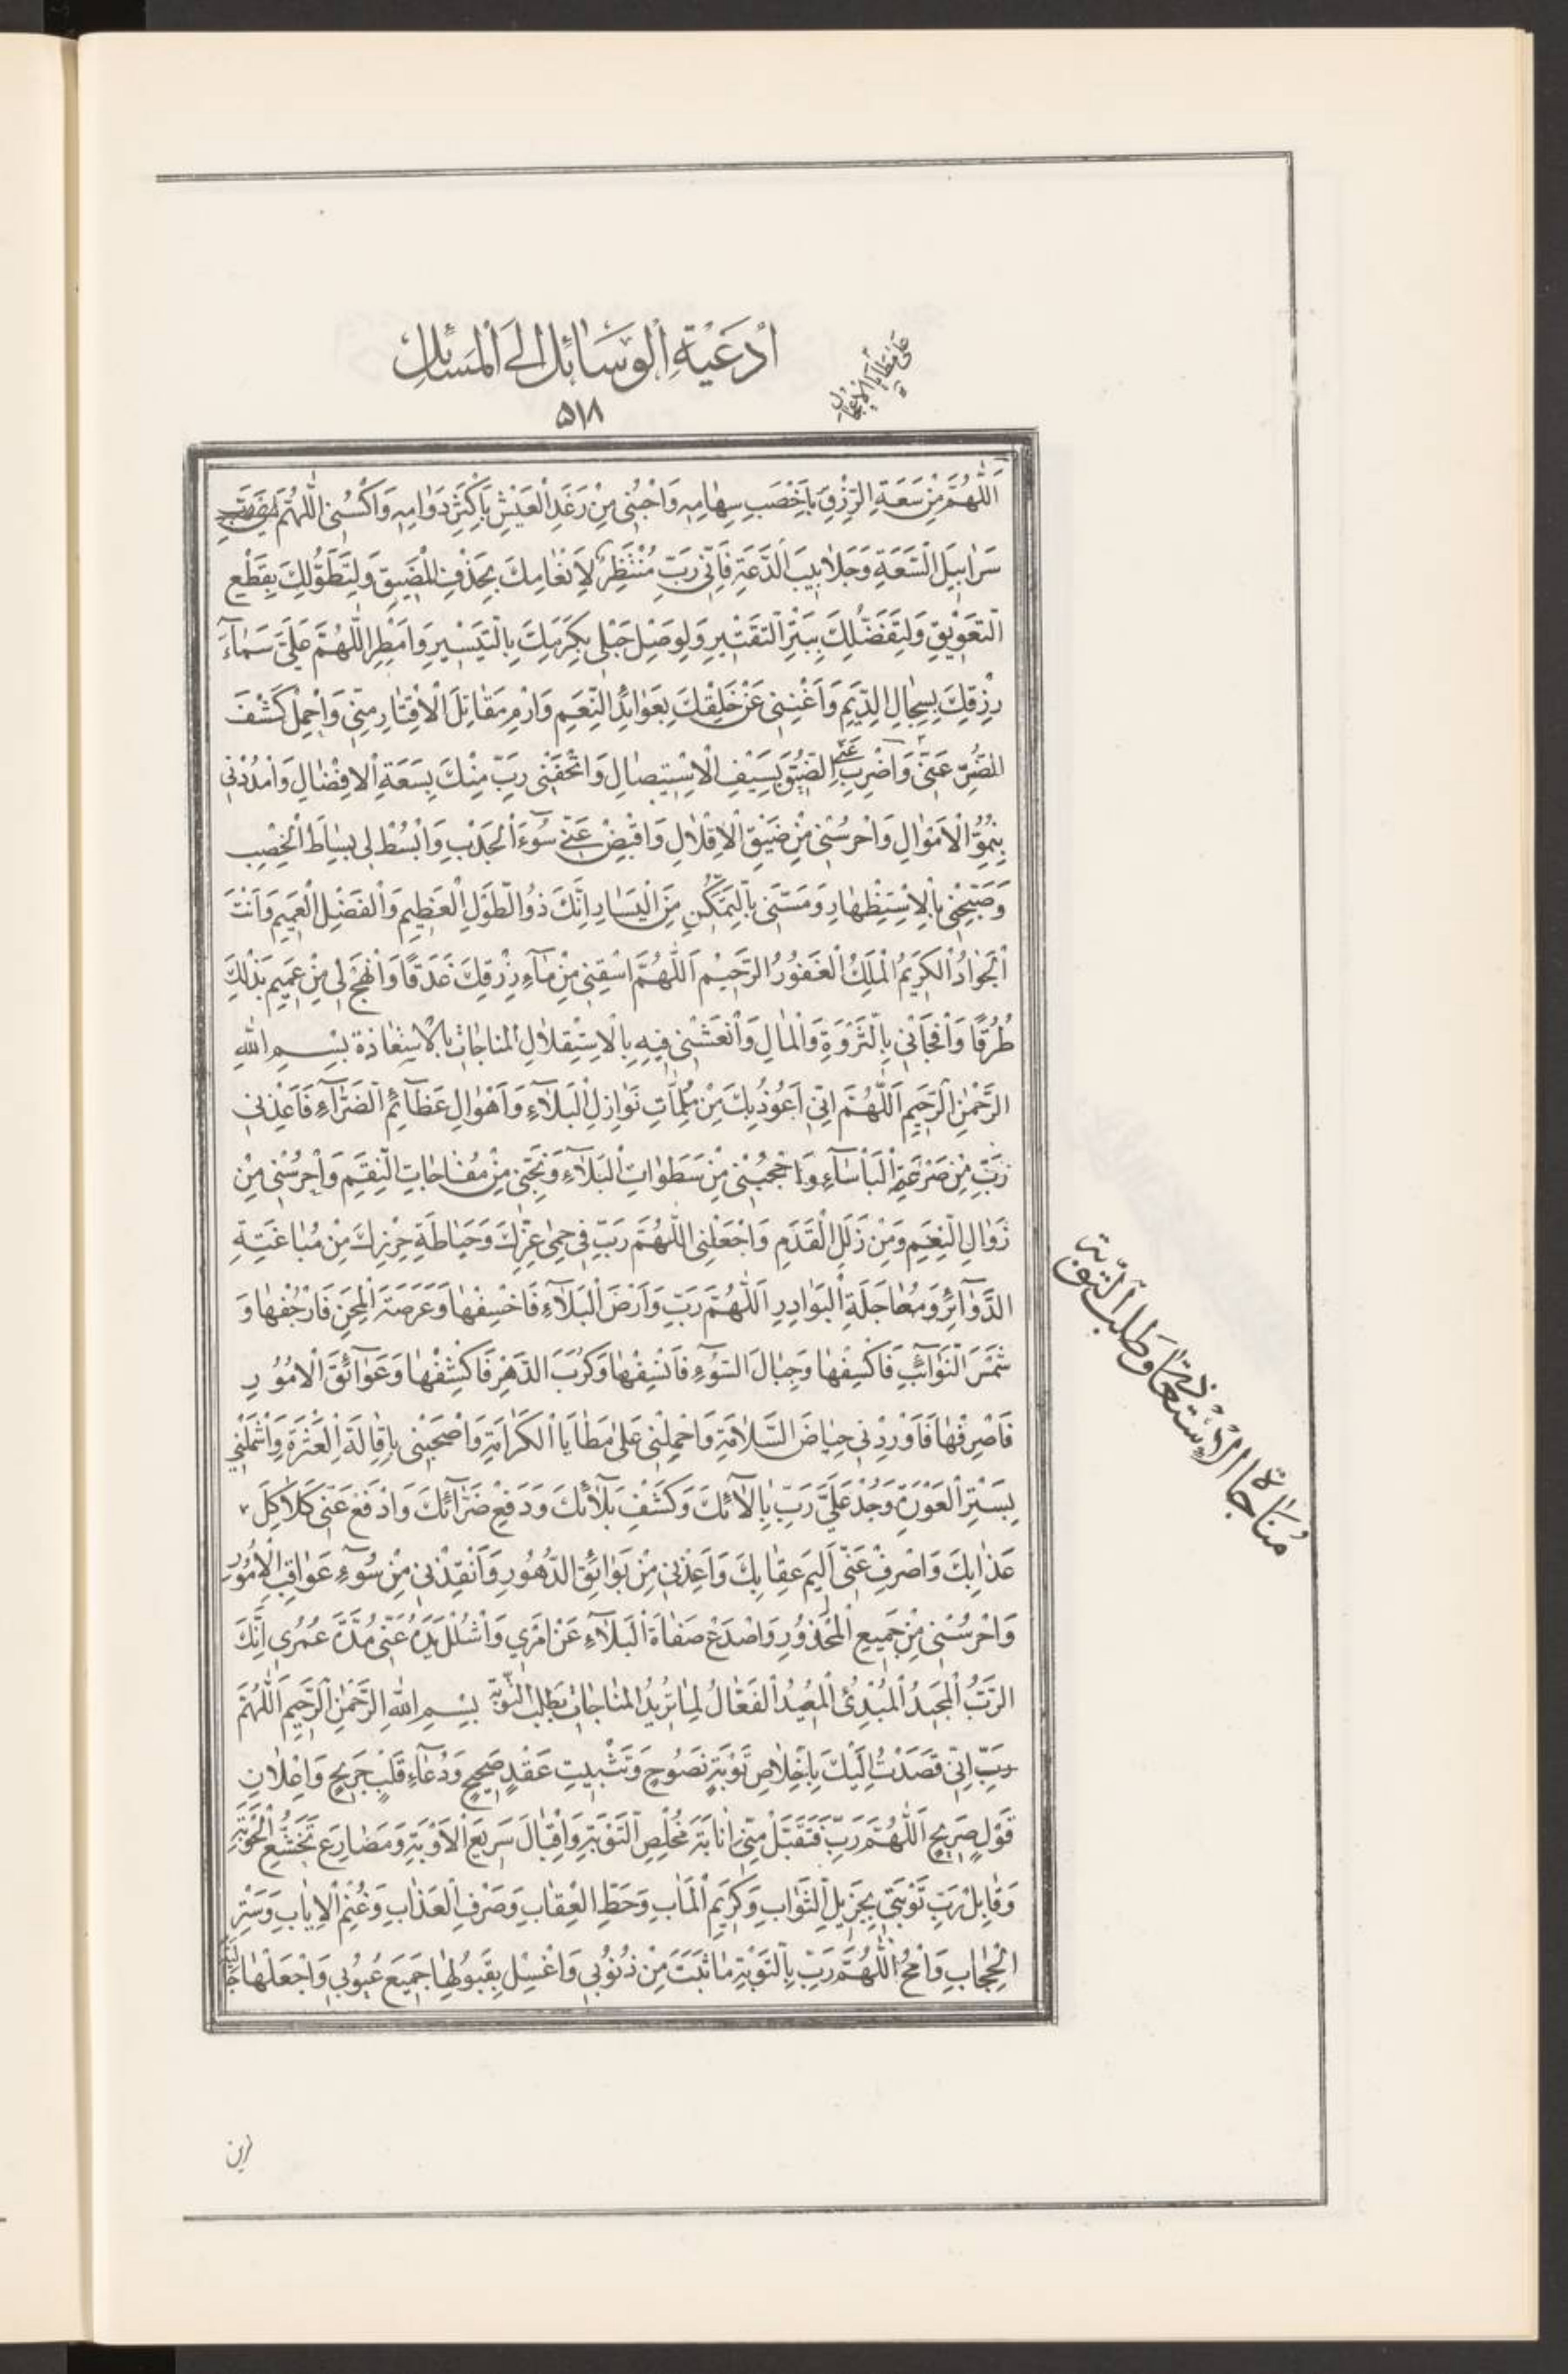 اَدْعِيَةِ الْوَسَائِلِ اِلَى الْمَسَائِلِ
۵۱۸
اَللّٰهُمَّ مِنْ سَعَةِ الرِّزْقِ بِاَخْصَبِ سِهٰامِهِ وَاحْبُنِي مِنْ رَغَدِ الْعَيْشِ بِاَكْثَرِ دَوٰامِهِ وَاكْسُنِي اللّٰهُمَّ
سَرٰابِيلَ السَّعَةِ وَجَلٰابِيبَ الدَّعَةِ فَاِنّي رَبِّ مُنْتَظِرٌ لِاِنْعٰامِكَ بِحَذْفِ الْمَضِيقِ وَلِتَطَوُّلِكَ بِقَطْعِ
التَّعْوِيقِ وَلِتَفَضُّلِكَ بِبَتْرِ التَّقْتِيرِ وَلِوَصْلِ حَبْلي بِكَرَمِكَ بِالتَّيْسِيرِ وَاَمْطِرِ اللّٰهُمَّ عَلَيَّ سَمٰآءَ
رِزْقِكَ بِسِجٰالِ الدِّيَمِ وَاَغْنِنِي عَنْ خَلْقِكَ بِعَوٰائِدِ النِّعَمِ وَارْمِ مَقٰاتِلَ الْاِقْتٰارِ مِنّي وَاحْمِلْ كَشْفَ
الضُّرِّ عَنّي وَاضْرِبْ عَنِّي الضّيقَ بِسَيْفِ الْاِسْتِيصٰالِ وَاتْحِفْنِي رَبِّ مِنْكَ بِسَعَةِ الْاِفْضٰالِ وَامْدُدْنِي
بِنُمُوِّ الْاَمْوٰالِ وَاحْرُسْنِي مِنْ ضِيْقِ الْاِقْلٰالِ وَاقْبِضْ عَنّي سُوٓءَ الْجَدْبِ وَابْسُطْ لِي بِسٰاطَ الْخِصْبِ
وَصَبِّحْنِي بِالْاِسْتِظْهٰارِ وَمَسِّنِي بِالتَّمَكُّنِ مِنَ الْيَسٰارِ اِنَّكَ ذُو الطَّوْلِ الْعَظِيمِ وَالْفَضْلِ الْعَمِيمِ وَاَنْتَ
الْجَوٰادُ الْكَرِيمُ الْمَلِكُ الْغَفُورُ الرَّحِيمُ اَللّٰهُمَّ اسْقِنِي مِنْ مٰآءِ رِزْقِكَ غَدَقًا وَانْهَجْ لِي مِنْ عَمِيمِ بَذْلِكَ
طُرُقًا وَافْجَأْنِي بِالثَّرْوَةِ وَالْمٰالِ وَانْعَشْنِي فِيهِ بِالْاِسْتِقْلٰالِ المناجات بالاستعاذة بِسْمِ اللهِ
الرَّحْمٰنِ الرَّحِيمِ اَللّٰهُمَّ اِنّي اَعُوذُ بِكَ مِنْ مُلِمّٰاتِ نَوٰازِلِ الْبَلٰآءِ وَاَهْوٰالِ عَظٰآئِمِ الضَّرّٰآءِ فَاَعِذْنِي
رَبِّ مِنْ صَرْعَةِ الْبَأْسٰآءِ وَاحْجُبْنِي مِنْ سَطَوٰاتِ الْبَلٰآءِ وَنَجِّنِي مِنْ مُفٰاجٰاتِ النِّقَمِ وَاحْرُسْنِي مِنْ
زَوٰالِ النِّعَمِ وَمِنْ زَلَلِ الْقَدَمِ وَاجْعَلْنِي اللّٰهُمَّ رَبِّ فِي حِمٰى عِزِّكَ وَحِيٰاطَةِ حِرْزِكَ مِنْ مُبٰاغَتَةِ
الدَّوٰآئِرِ وَمُعٰاجَلَةِ الْبَوٰادِرِ اَللّٰهُمَّ رَبِّ وَاَرْضَ الْبَلٰآءِ فَاخْسِفْهٰا وَعَرْصَةَ الْمِحَنِ فَارْجُفْهٰا وَ
شَمْسَ النَّوٰآئِبِ فَاكْسِفْهٰا وَجِبٰالَ السُّوٓءِ فَانْسِفْهٰا وَكُرَبَ الدَّهْرِ فَاكْشِفْهٰا وَعَوٰآئِقَ الْاُمُورِ
فَاصْرِفْهٰا فَاَوْرِدْنِي حِيٰاضَ السَّلٰامَةِ وَاحْمِلْنِي عَلٰى مَطٰايَا الْكَرٰامَةِ وَاصْحَبْنِي بِاِقٰالَةِ الْعَثْرَةِ وَاشْمَلْنِي
بِسَتْرِ الْعَوْرَةِ وَجُدْ عَلَيَّ رَبِّ بِاٰلٰآئِكَ وَكَشْفِ بَلٰآئِكَ وَدَفْعِ ضَرّٰآئِكَ وَادْفَعْ عَنّي كَلٰاكِلَ
عَذٰابِكَ وَاصْرِفْ عَنّي اَلِيمَ عِقٰابِكَ وَاَعِذْنِي مِنْ بَوٰائِقِ الدُّهُورِ وَاَنْقِذْنِي مِنْ سُوٓءِ عَوٰاقِبِ الْاُمُورِ
وَاحْرُسْنِي مِنْ جَمِيعِ الْمَحْذُورِ وَاصْدَعْ صَفٰاةَ الْبَلٰآءِ عَنْ اَمْرِي وَاشْلُلْ يَدَهُ عَنّي مُدَّةَ عُمُرِي اِنَّكَ
الرَّبُّ الْمَجِيدُ الْمُبْدِئُ الْمُعِيدُ الْفَعّٰالُ لِمٰا تُرِيدُ المناجات بطلب التوبة بِسْمِ اللهِ الرَّحْمٰنِ الرَّحِيمِ اَللّٰهُمَّ
رَبِّ اِنّي قَصَدْتُ اِلَيْكَ بِاِخْلٰاصِ تَوْبَةٍ نَصُوحٍ وَتَثْبِيتِ عَقْدٍ صَحِيحٍ وَدُعٰآءِ قَلْبٍ جَرِيحٍ وَاِعْلٰانِ
قَوْلٍ صَرِيحٍ اَللّٰهُمَّ رَبِّ فَتَقَبَّلْ مِنّي اِنٰابَةَ مُخْلِصِ التَّوْبَةِ وَاِقْبٰالَ سَرِيعِ الْاَوْبَةِ وَمَصٰارِعَ تَخَشُّعِ الْحَوْبَةِ
وَقٰابِلْ رَبِّ تَوْبَتِي بِجَزِيلِ الثَّوٰابِ وَكَرِيمِ الْمَاٰبِ وَحَطِّ الْعِقٰابِ وَصَرْفِ الْعَذٰابِ وَغُنْمِ الْاِيٰابِ وَسَتْرِ
الْحِجٰابِ وَامْحُ اللّٰهُمَّ رَبِّ بِالتَّوْبَةِ مٰا ثَبَتَ مِنْ ذُنُوبِي وَاغْسِلْ بِقَبُولِهٰا جَمِيعَ عُيُوبِي وَاجْعَلْهٰا
مُنَاجَاةُ الْاِسْتِعَاذَةِ وَطَلَبِ التَّوْبَةِ